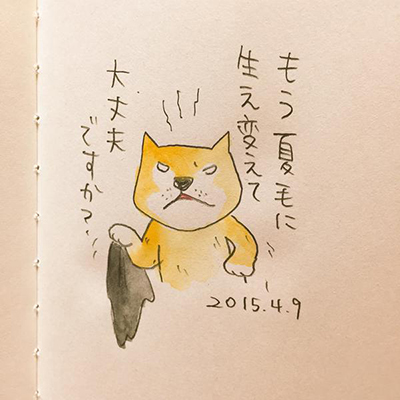 もう夏毛に
生え変えて
大丈夫
ですか?
2015.4.9